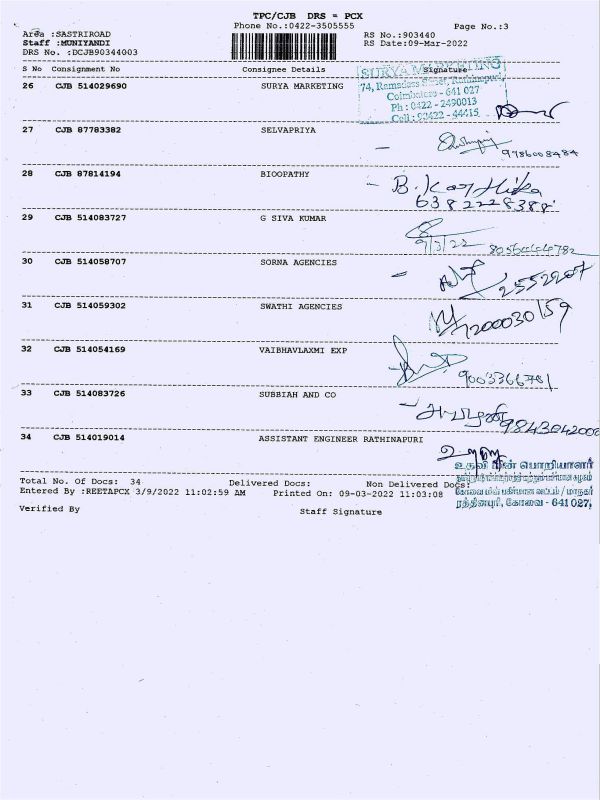 TPC/CJB DRS = PCX
Phone No.:0422-3505555 Page No.:3
Area :SASTRIROAD RS No.:903440
Staff :MUNIYANDI RS Date:09-Mar-2022
DRS No. :DCJB90344003
S No Consignment No Consignee Details Signature
SURYA MARKETING
74, Ramadass Street, Rathinapuri,
Coimbatore - 641 027
Ph : 0422 - 2490013
Cell : 93422 - 44415
26 CJB 514029690 SURYA MARKETING
27 CJB 87783382 SELVAPRIYA
9786008484
28 CJB 87814194 BIOOPATHY
B. Karthika
6382228388
29 CJB 514083727 G SIVA KUMAR
9/3/22
30 CJB 514058707 SORNA AGENCIES
2552207
31 CJB 514059302 SWATHI AGENCIES
7200030159
32 CJB 514054169 VAIBHAVLAXMI EXP
9003366781
33 CJB 514083726 SUBBIAH AND CO
34 CJB 514019014 ASSISTANT ENGINEER RATHINAPURI
உதவி மின் பொறியாளர்
கோவை மின் பகிர்மான வட்டம் / மாநகர்
ரத்தினபுரி, கோவை - 641 027,
Total No. Of Docs: 34 Delivered Docs: Non Delivered Docs:
Entered By :REETAPCX 3/9/2022 11:02:59 AM Printed On: 09-03-2022 11:03:08
Verified By Staff Signature